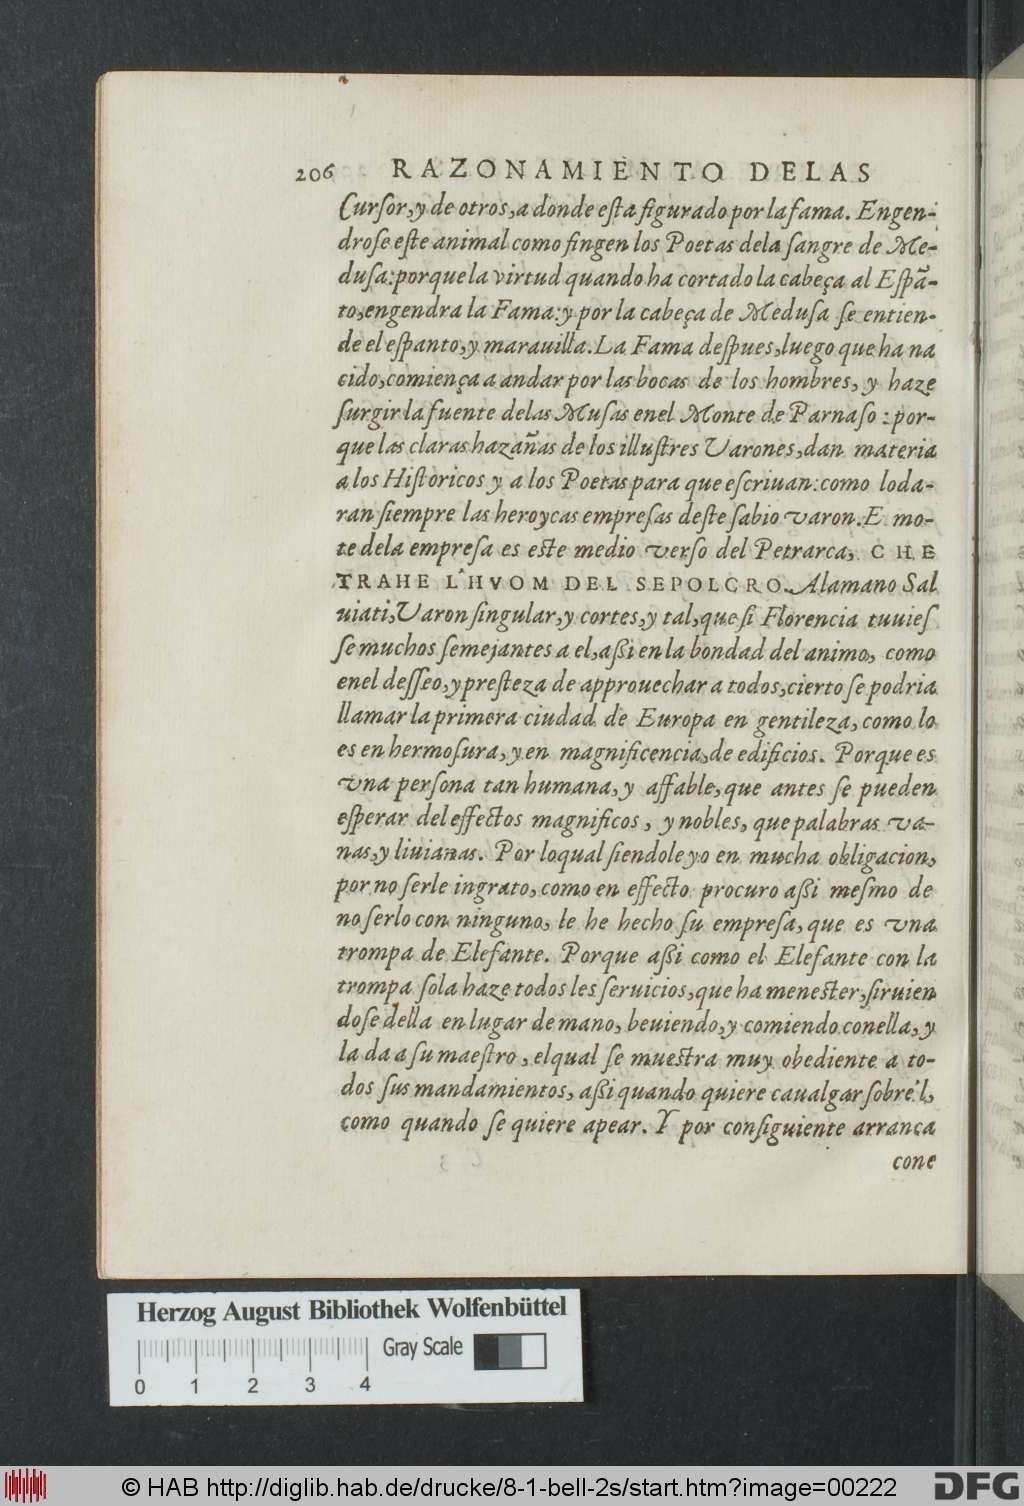 206 RAZONAMIENTO DELAS
Curſor,y de otros,a donde eſta figurado por la fama. Engen-
droſe eſte animal como fingen los Poetas dela ſangre de Me-
duſa:porque la virtud quando ha cortado la cabeça al Eſpã-
to,engendra la Fama:y por la cabeça de Meduſa ſe entien-
de el eſpanto,y marauilla.La Fama deſpues,luego que ha na
cido,comiença a andar por las bocas de los hombres, y haze
ſurgir la fuente delas Muſas enel Monte de Parnaſo : por-
que las claras hazañas de los illuſtres Varones,dan materia
a los Hiſtoricos y a los Poetas para que eſcriuan:como loda-
ran ſiempre las heroycas empreſas deſte ſabio varon.E mo-
te dela empreſa es eſte medio verſo del Petrarca, CHE
TRAHE L'HVOM DEL SEPOLCRO. Alamano Sal
uiati,Varon ſingular,y cortes,y tal,que ſi Florencia tuuieſ
ſe muchos ſemejantes a el,aßi en la bondad del animo, como
enel deſſeo,y preſteza de approuechar a todos,cierto ſe podria
llamar la primera ciudad de Europa en gentileza,como lo
es en hermoſura,y en magnificencia,de edificios. Porque es
vna perſona tan humana,y affable,que antes ſe pueden
eſperar del effectos magnificos, y nobles, que palabras va-
nas,y liuianas. Por loqual ſiendole yo en mucha obligacion,
por no ſerle ingrato,como en effecto procuro aßi meſmo de
no ſerlo con ninguno, le he hecho ſu empreſa, que es vna
trompa de Elefante. Porque aßi como el Elefante con la
trompa ſola haze todos les ſeruicios,que ha meneſter,ſiruien
doſe della en lugar de mano, beuiendo,y comiendo conella, y
la da a ſu maeſtro, elqual ſe mueſtra muy obediente a to-
dos ſus mandamientos, aßi quando quiere caualgar ſobre'l,
como quando ſe quiere apear. Y por conſiguiente arranca
cone
Herzog August Bibliothek Wolfenbüttel
Gray Scale
0 1 2 3 4
© HAB http://diglib.hab.de/drucke/8-1-bell-2s/start.htm?image=00222
DFG